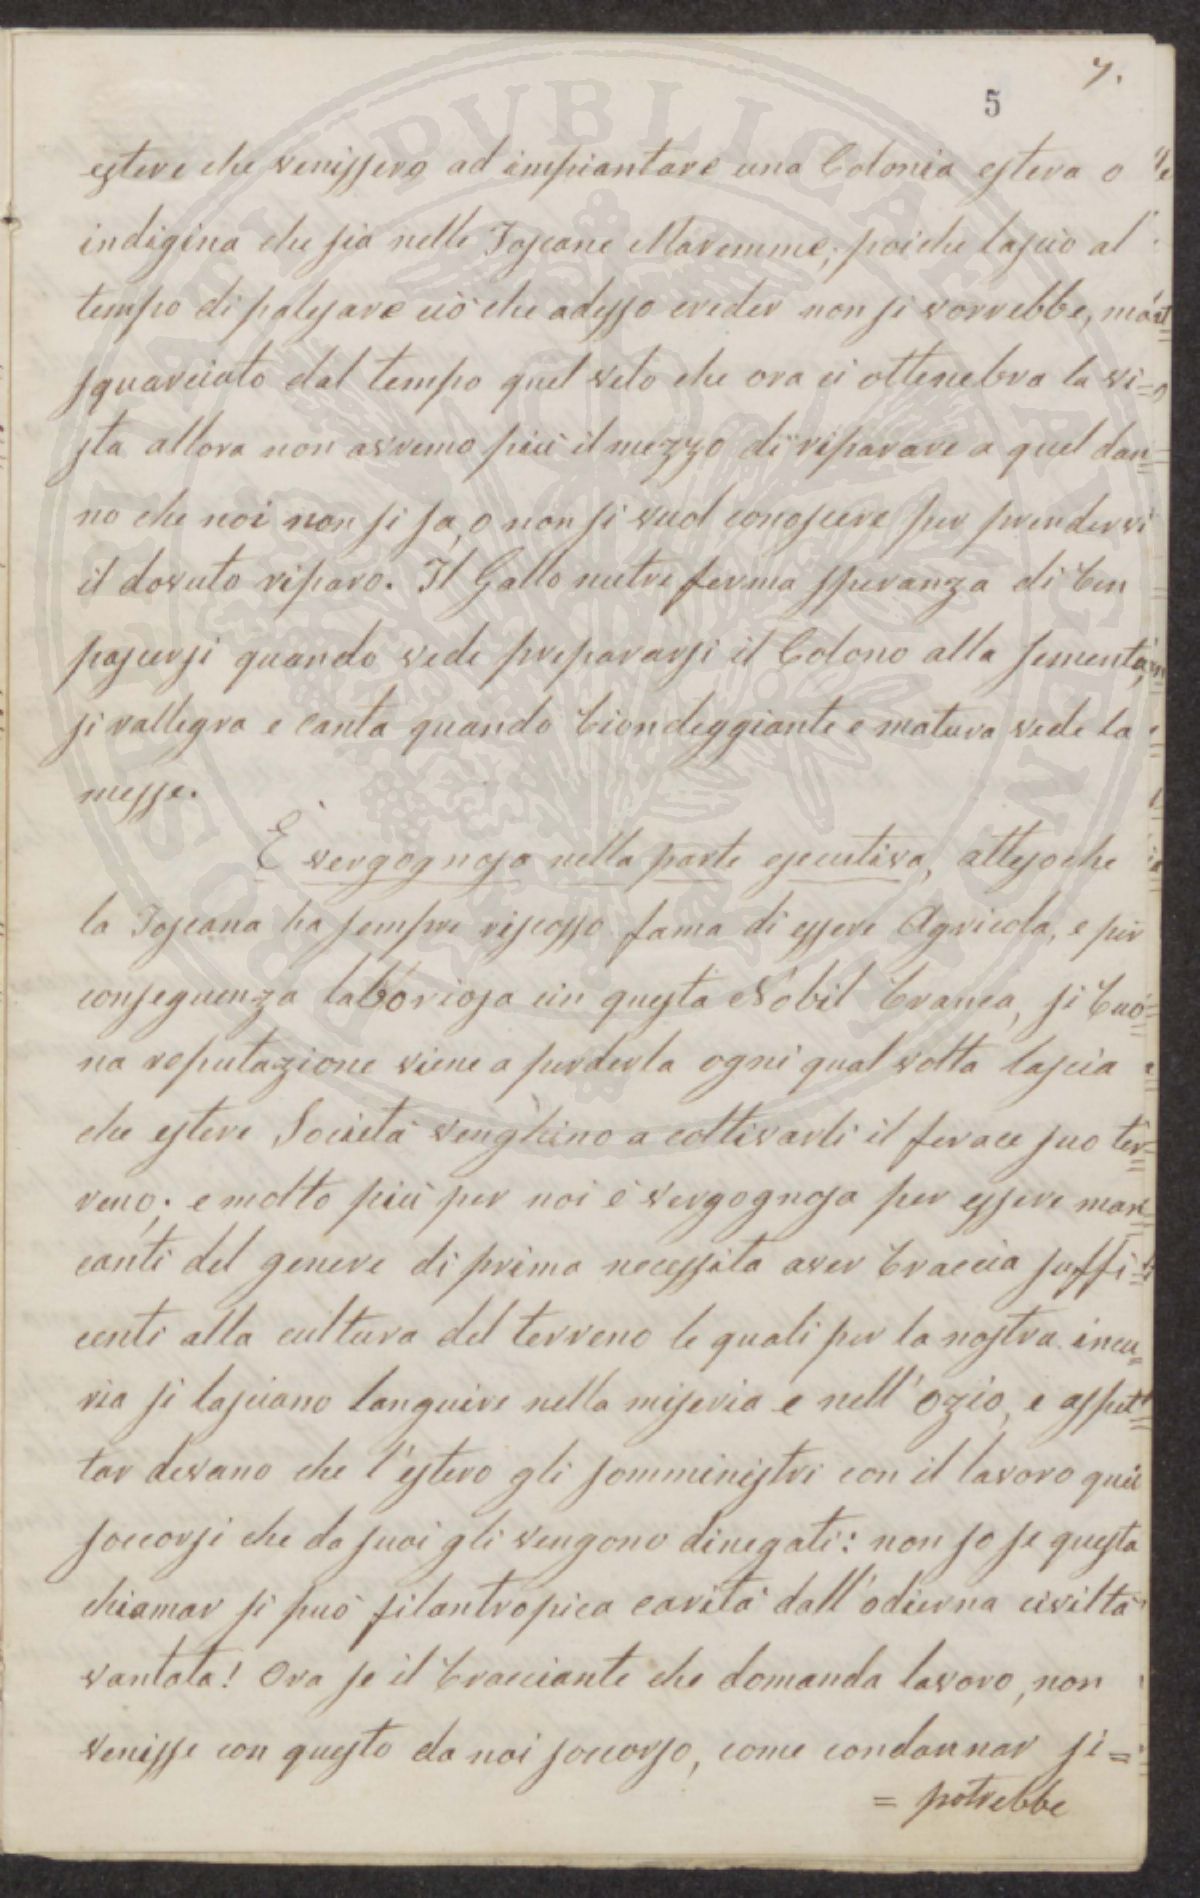 7.
5
estere che venissero ad impiantare una Colonia estera o
indigina che sia nelle Toscane Maremme; poiche lascio al
tempo di palesare ciò che adesso creder non si vorrebbe, mà
squarciato dal tempo quel velo che ora ci ottenebra la vi=
sta allora non avremo più il mezzo di riparare a quel dan=
no che noi non si sa, o non si vuol conoscere per prendervi
il dovuto riparo. Il Gallo nutre ferma speranza di ben
pascersi quando vede prepararsi il Colono alla sementa,
si rallegra e canta quando biondeggiante e matura vede la
messe.
È vergognosa nella parte esecutiva, attesoche
la Toscana ha sempre riscosso fama di essere Agricola, e per
conseguenza laboriosa in questa Nobil branca, si buo=
na reputazione viene a perderla ogni qual volta lascia
che estere Società venghino a coltivarli il ferace suo ter=
reno; e molto più per noi è vergognosa per essere man=
canti del genere di prima necessita aver braccia suffi=
centi alla cultura del terreno le quali per la nostra incu=
ria si lasciano languire nella miseria e nell'ozio, e aspet=
tar devano che l'estero gli somministri con il lavoro quei
soccorsi che da suoi gli vengono dinegati: non so se questa
chiamar si può filantropica carità dall'odierna civiltà
vantata! Ora se il bracciante che domanda lavoro, non
venisse con questo da noi soccorso, come condannar si=
= potrebbe